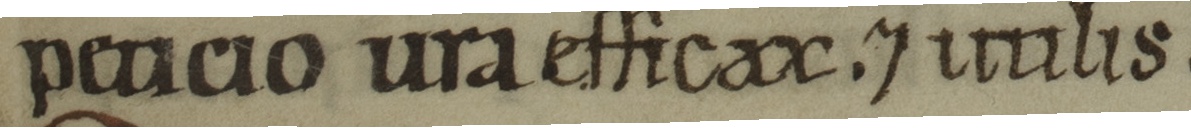 peticio ura efficax. ⁊ utilis